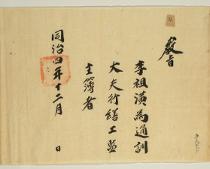 敎旨
李祖潢為通訓
大夫行繕工監
主簿者
同治四年十二月 日